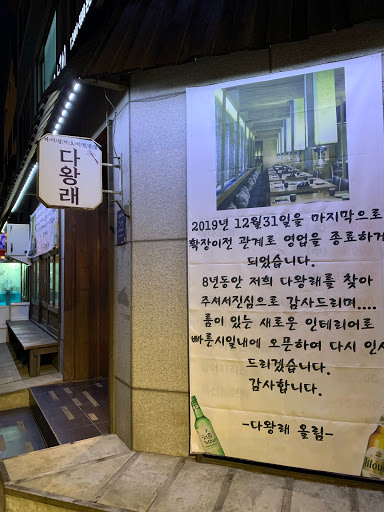 다왕래
2019년 12월31일을 마지막으로
확장이전 관계로 영업을 종료하게
되었습니다.
8년동안 저희 다왕래를 찾아
주셔서진심으로 감사드리며....
룸이 있는 새로운 인테리어로
빠른시일내에 오픈하여 다시 인사
드리겠습니다.
감사합니다.
-다왕래 올림-